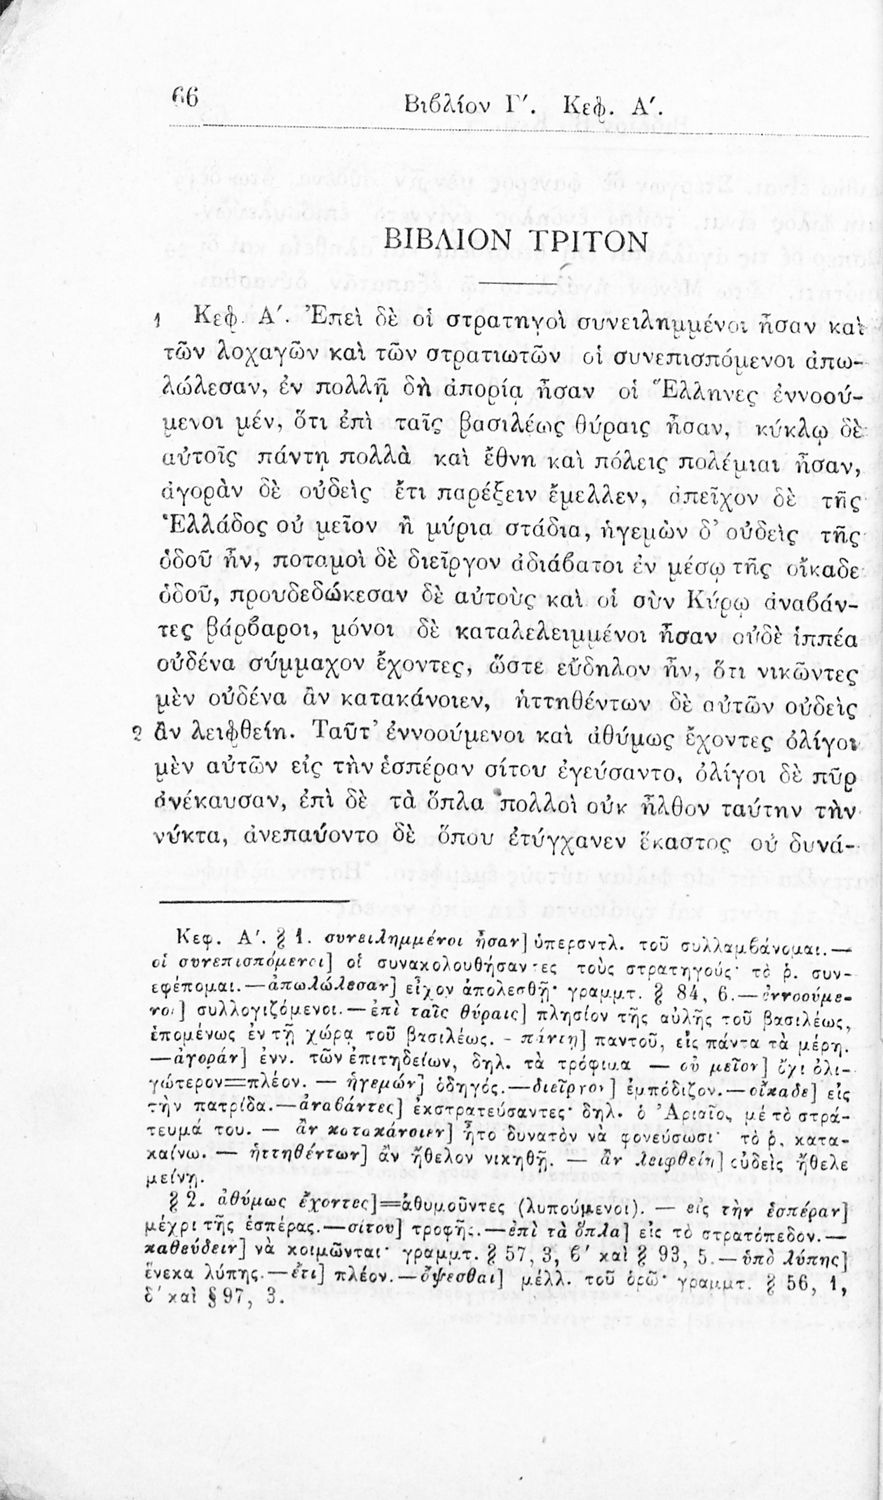 66
Βιβλίον Γ′. Κεφ. Α′.
ΒΙΒΛΙΟΝ ΤΡΙΤΟΝ
1 Κεφ. Α′. Ἐπεὶ δὲ οἱ στρατηγοὶ συνειλημμένοι ἦσαν καὶ
τῶν λοχαγῶν καὶ τῶν στρατιωτῶν οἱ συνεπισπόμενοι ἀπω-
λώλεσαν, ἐν πολλῇ δὴ ἀπορίᾳ ἦσαν οἱ Ἕλληνες ἐννοού-
μενοι μέν, ὅτι ἐπὶ ταῖς βασιλέως θύραις ἦσαν, κύκλῳ δὲ
αὐτοῖς πάντῃ πολλὰ καὶ ἔθνη καὶ πόλεις πολέμιαι ἦσαν,
ἀγορὰν δὲ οὐδεὶς ἔτι παρέξειν ἔμελλεν, ἀπεῖχον δὲ τῆς
Ἑλλάδος οὐ μεῖον ἢ μύρια στάδια, ἡγεμὼν δ' οὐδεὶς τῆς
ὁδοῦ ἦν, ποταμοὶ δὲ διεῖργον ἀδιάβατοι ἐν μέσῳ τῆς οἴκαδε
ὁδοῦ, προυδεδώκεσαν δὲ αὐτοὺς καὶ οἱ σὺν Κύρῳ ἀναβάν-
τες βάρβαροι, μόνοι δὲ καταλελειμμένοι ἦσαν οὐδὲ ἱππέα
οὐδένα σύμμαχον ἔχοντες, ὥστε εὔδηλον ἦν, ὅτι νικῶντες
μὲν οὐδένα ἂν κατακάνοιεν, ἡττηθέντων δὲ αὐτῶν οὐδεὶς
2 ἂν λειφθείη. Ταῦτ' ἐννοούμενοι καὶ ἀθύμως ἔχοντες ὀλίγοι
μὲν αὐτῶν εἰς τὴν ἑσπέραν σίτου ἐγεύσαντο, ὀλίγοι δὲ πῦρ
ἀνέκαυσαν, ἐπὶ δὲ τὰ ὅπλα πολλοὶ οὐκ ἦλθον ταύτην τὴν
νύκτα, ἀνεπαύοντο δὲ ὅπου ἐτύγχανεν ἕκαστος οὐ δυνά-
Κεφ. Α′. § 1. συνειλημμένοι ἦσαν] ὑπερσντλ. τοῦ συλλαμβάνομαι.—
οἱ συνεπισπόμενοι] οἱ συνακολουθήσαντες τοὺς στρατηγούς· τὸ ῥ. συν-
εφέπομαι.—ἀπωλώλεσαν] εἶχον ἀπολεσθῆ· γραμμτ. § 84, 6.—ἐννοούμε-
νοι] συλλογιζόμενοι.—ἐπὶ ταῖς θύραις] πλησίον τῆς αὐλῆς τοῦ βασιλέως,
ἑπομένως ἐν τῇ χώρᾳ τοῦ βασιλέως. - πάντῃ] παντοῦ, εἰς πάντα τὰ μέρη.
—ἀγοράν] ἐνν. τῶν ἐπιτηδείων, δηλ. τὰ τρόφιμα — οὐ μεῖον] ὄχι ὀλι-
γώτερον=πλέον. — ἡγεμών] ὁδηγός.—διεῖργον] ἐμπόδιζον.—οἴκαδε] εἰς
τὴν πατρίδα.—ἀναβάντες] ἐκστρατεύσαντες· δηλ. ὁ Ἀριαῖος μὲ τὸ στρά-
τευμά του. — ἂν κατακάνοιεν] ἦτο δυνατὸν νὰ φονεύσωσι· τὸ ῥ. κατα-
καίνω. — ἡττηθέντων] ἂν ἤθελον νικηθῆ. — ἂν λειφθείη] οὐδεὶς ἤθελε
μείνῃ.
§ 2. ἀθύμως ἔχοντες]=ἀθυμοῦντες (λυπούμενοι). — εἰς τὴν ἑσπέραν]
μέχρι τῆς ἑσπέρας.—σίτου] τροφῆς.—ἐπὶ τὰ ὅπλα] εἰς τὸ στρατόπεδον.—
καθεύδειν] νὰ κοιμῶνται· γραμμτ. § 57, 3, 6′ καὶ § 93, 5.—ὑπὸ λύπης]
ἕνεκα λύπης.—ἔτι] πλέον.—ὄψεσθαι] μέλλ. τοῦ ὁρῶ· γραμμτ. § 56, 1,
δ′ καὶ § 97, 3.